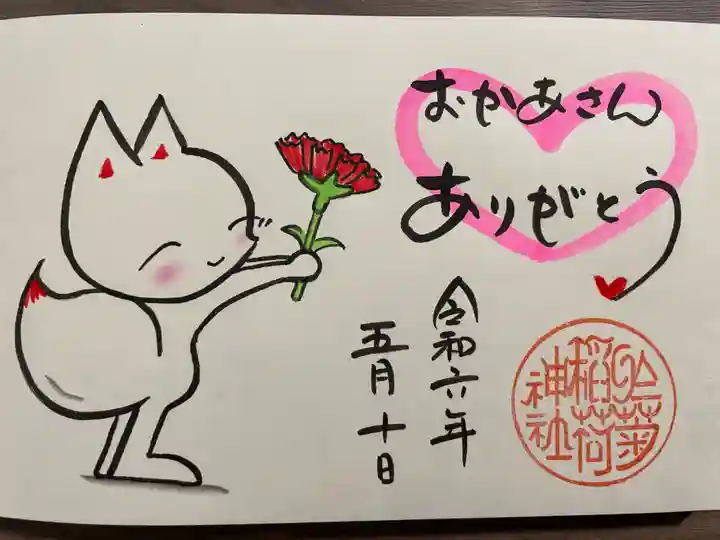 おかあさん
ありがとう
令和六年
五月十日
於菊
稲荷
神社